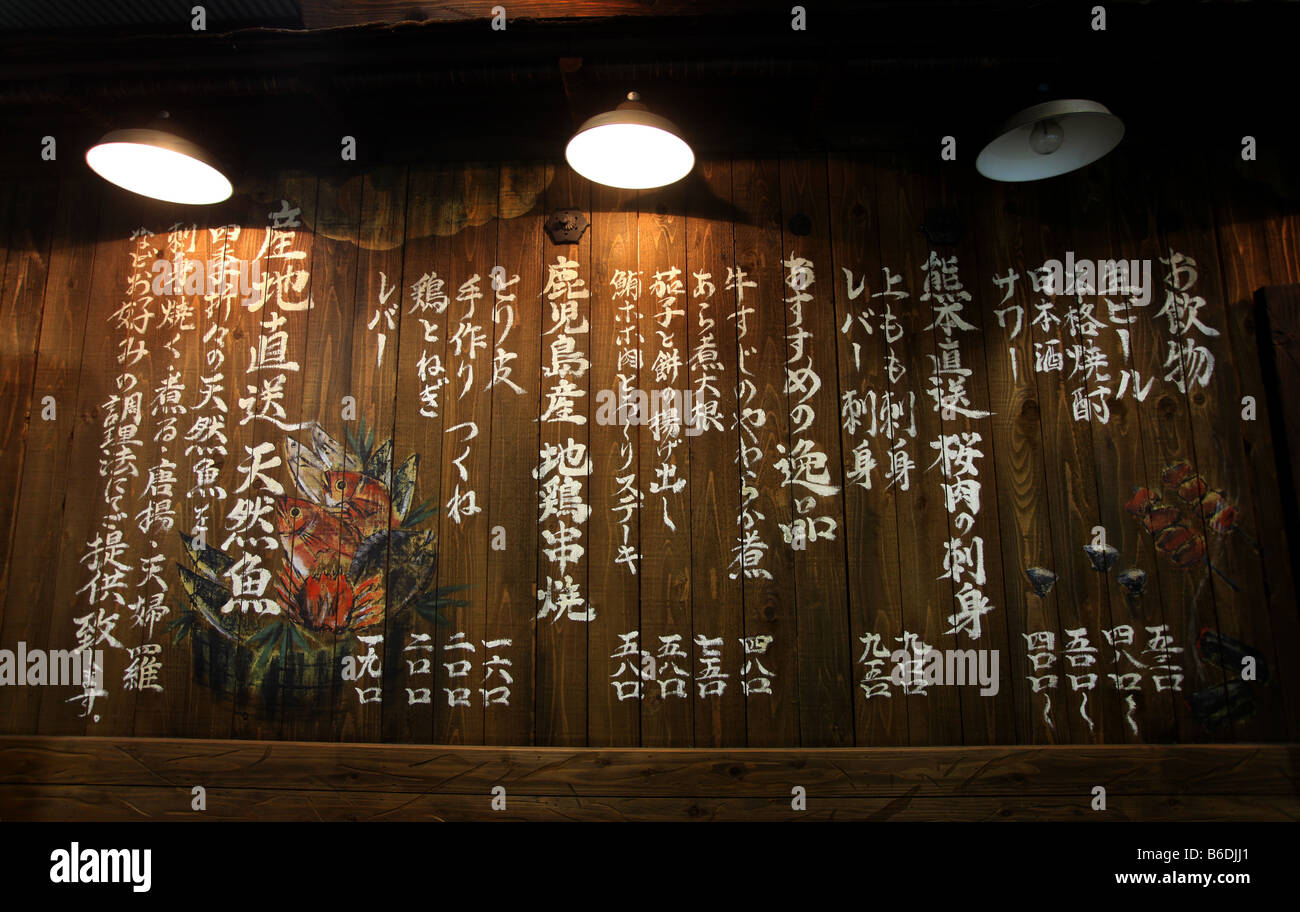 お飲物
生ビール 五三〇
本格焼酎 四八〇〜
日本酒
サワー
熊本直送 桜肉の刺身
上もも刺身
レバー刺身 九五〇
おすすめの逸品
牛すじのやわらか煮 四八〇
あら煮大根 七五〇
茄子と餅の揚げ出し 五八〇
鮪ホホ肉 ステーキ 五八〇
鹿児島産 地鶏串焼
とり皮 一六〇
手作り つくね 二〇〇
鶏とねぎ 二〇〇
レバー 一九〇
産地直送 天然魚
四季折々の天然魚を
刺身・焼く・煮る・唐揚 天婦羅
などお好みの調理法にてご提供致します。
alamy
Image ID: B6DJJ1
www.alamy.com